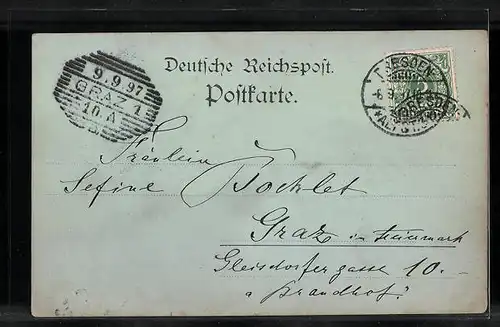 Deutsche Reichspost.
Postkarte.
9.9.97
GRAZ 1
10.A
DRESDEN-
DRESDEN
ALTST.
Fräulein
Sefine Bocklet
Graz in Steiermark
Gleisdorfergasse 10.-
"Brandhof."